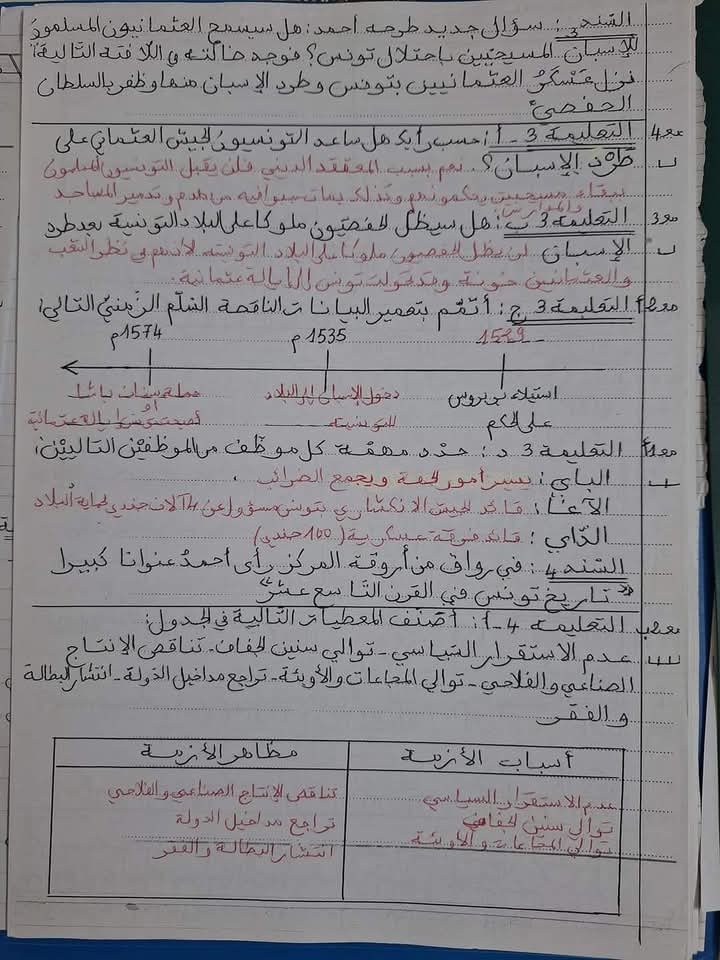 السّند 3 : سؤال جديد طرحه أحمد: هل سيسمح العثمانيون المسلمون
للإسبان المسيحيّين باحتلال تونس؟ فوجد ضالّته في اللّافتة التّالية:
نزل عَسْكَرُ العثمانيين بتونس وطرد الإسبان منها وظفر بالسلطان
الحفصيّ
مع4 التعليمة 3 - أ: حسب رأيك هل ساعد التونسيون الجيش العثماني على
طرد الإسبان؟. نعم بسبب المعتقد الديني فلن يقبل التونسيون المسلمون
ببقاء مسيحيين يحكمونهم وكذلك بما تسبوا فيه من هدم وتدمير المساجد
والمدارس
مع3 التعليمة 3 ب: هل سيظل الحفصيّون ملوكا على البلاد التونسية بعد طرد
الإسبان لن يظل الحفصيون ملوكا على البلاد التونسية لأنهم في نظر الشعب
والعثمانيين خونة وقد تحولت تونس إلى إيالة عثمانية.
مع2أ التعليمة 3 ج: أتمّم بتعمير البيانات الناقصة السّلّم الزّمنيّ التالي:
1574م 1535م 1529
استيلاء بربروس دخول الإسبان إلى البلاد حملة سنان باشا
على الحكم التونسية أصبحت تونس إيالة عثمانية
مع1أ التعليمة 3 د: حدّد مهمّة كل موظّف من الموظّفين التاليين:
البايّ: يسير أمور المحلة ويجمع الضرائب
الآغا: قائد الجيش الانكشاري بتونس مسؤول عن 4 آلاف جندي لحماية البلاد
الدّاي: قائد فرقة عسكرية (100 جندي)
السّند 4 : في رواق من أروقة المركز رأى أحمدُ عنوانا كبيرا
"تاريخ تونس في القرن التاسع عشر"
مع2ب التعليمة 4-أ: أصنّف المعطيات التّالية في الجدول:
عدم الاستقرار السّياسي - توالي سنين الجفاف - تناقص الإنتاج
الصناعي والفلاحي - توالي المجاعات والأوبئة - تراجع مداخيل الدولة - انتشار البطالة
والفقر
أسباب الأزمة مظاهر الأزمة
عدم الاستقرار السياسي تناقص الإنتاج الصناعي والفلاحي
توالي سنين الجفاف تراجع مداخيل الدولة
توالي المجاعات والأوبئة انتشار البطالة والفقر